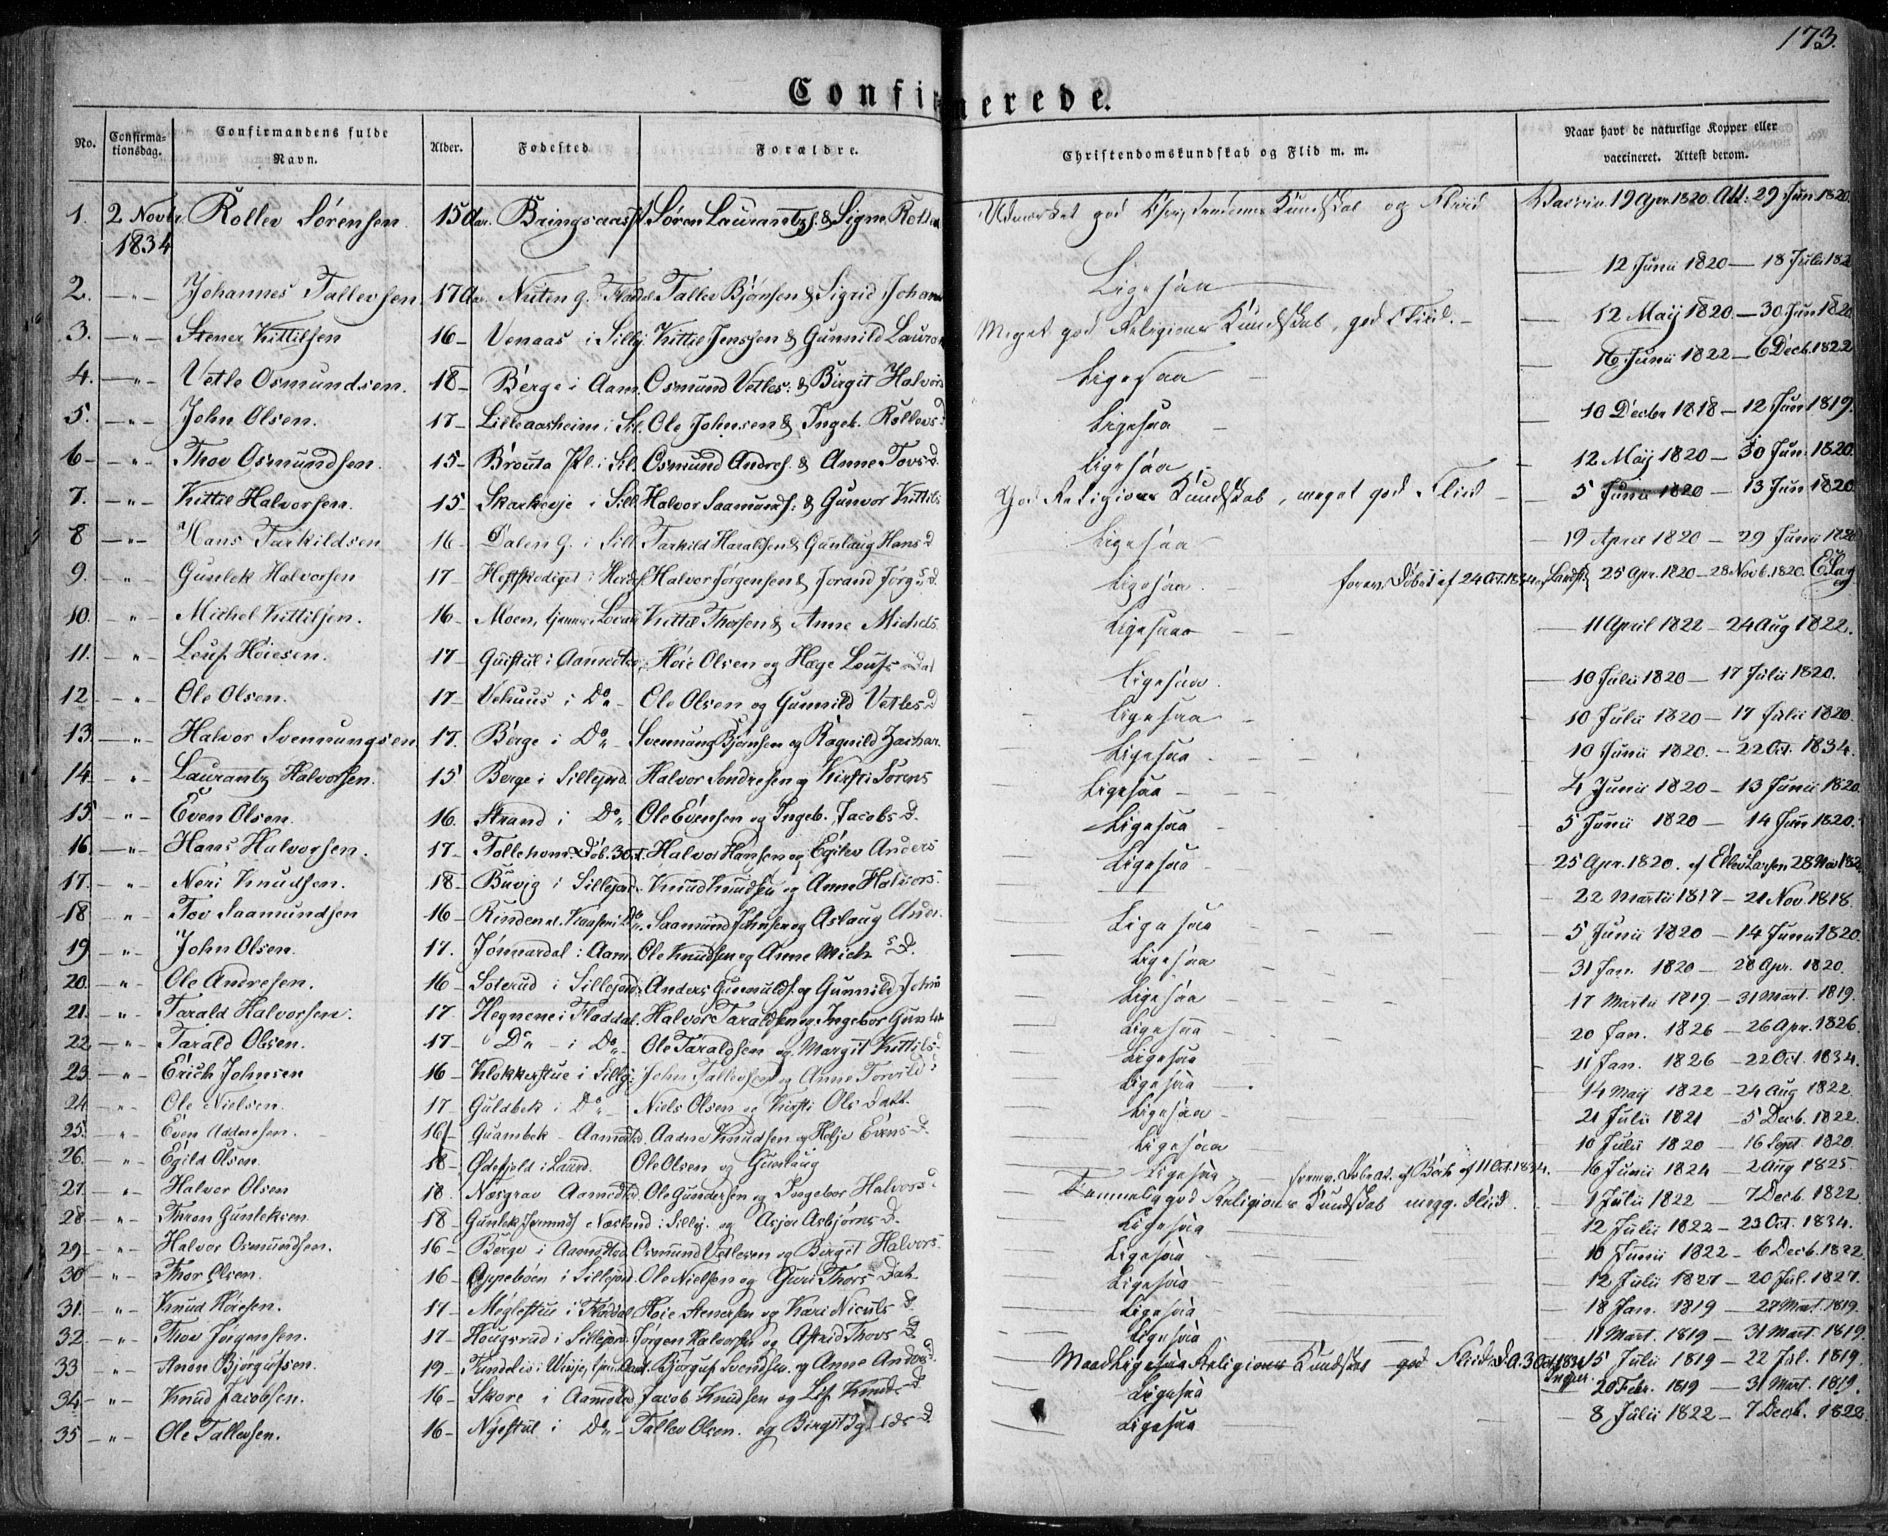 173.
Confirmerede.
No. Confirmationsdag. Confirmandens fulde Navn. Alder. Fødested Forældre. Christendomskundskab og Flid m. m. Naar havt de naturlige Kopper eller vaccineret. Attest derom.
1. 2 Novbr 1834 Rollev Sørensen 15 Aar. Søren Laurantzs. & Signe Udmærket god Christendoms Kundskab og Fliid Vaccin. 19 Apr. 1820. Att: 29 Juni 1820.
2. —"— Johannes Tallevsen 17 Aar. Tallev Bjønsen & Sigrid Johan Ligesaa — 12 Junii 1820 — 18 Julii 182
3. —"— Stener Kittilsen 16 — Venaas i Sillej Kittil Jenssen & Gunnild Meget god Religions Kundskab, god Fliid. — 12 Maij 1820. — 30 Jun 1820
4. —"— Vetle Osmundsen. 18 — Berge i Aam. Osmund Vetles: & Birgit Halvors Ligesaa — 16 Junii 1822 — 6 Decb. 1822
5. —"— John Olsen. 17 — Lilleaasheim i Sil. Ole Johnsen & Ingeb. Rollevs D Ligesaa — 10 Decbr 1818 — 12 Jun 1819.
6 — —"— Thov Osmundsen. 15 — Brouta Pl. i Sil. Osmund Andres. & Anne Tovs D. Ligesaa — 12 Maij 1820 — 30 Jun. 1820.
7. —"— Kittil Halvorsen. 15 — Skarkevje i Sill. Halvor Saamunds: & Gunvor Kittils God Religions Kundskab, meget god Fliid — 5 Junii 1820 — 13 Jun 1820.
8 —"— Hans Tarkildsen 16 — Dalen G. i Sill. Tarkild Haraldsen & Gunlaug Hans D Ligesaa — 19 April 1820 — 29 Junii 1820
9. —"— Gunlek Halvorsen 17 — Halvor Jørgensen & Jorand Jørg s. D. Ligesaa. 24 Oct. 1834 25 Apr. 1820 — 28 Novb. 1820.
10. —"— Michel Kittilsen. 16 — Moen, Kittil Thorsen & Anne Michels. Ligesaa — 11 April 1822 — 24 Aug 1822.
11. —"— Leuf Høiesen. 17 — Høie Olsen og Hæge Leufs Dat Ligesaa. — 10 Julii 1820 — 17 Julii 1820.
12 —"— Ole Olsen. 17 — Vehuus i Do — Ole Olsen og Gunnild Vetles D Ligesaa — 10 Julii 1820 — 17 Julii 1820.
13. —"— Halvor Svennungsen 17. Berge i Do — Svennung Bjønsen og Ragnild Zachar. Ligesaa — 10 Junii 1820. — 22 Oct. 1834.
14. —"— Laurantz Halvorsen. 15 Berge i Sillejord. Halvor Sondresen og Kirsti Sørens Ligesaa — 4 Junii 1820 — 13 Junii 1820.
15. —"— Even Olsen. 16. Strand i Do Ole Evensen og Ingeb. Jacobs D. Ligesaa — 5 Junii 1820 — 14 Jun 1820.
16. —"— Hans Halvorsen. 17 — Halvor Hansen og Egilev Anders Ligesaa — 25 Apr. 1820. af Ellev Larsen 28 Nov 182
17. —"— Neri Knudsen. 18 — Buvig i Sillejord. Knud Knudsen og Anne Halvors. 22 Martii 1817 — 21 Nov. 1818.
18 —"— Tov Saamundsen 16 — Saamund Johnsen og Aslaug Ander. Ligesaa — 5 Junii 1820 — 14 Junii 1820.
19 —"— John Olsen. 17. Jønnardal i Aam. Ole Knudsen og Anne Mich s. D. Ligesaa — 31 Jan. 1820 — 28 Apr. 1820.
20. —"— Ole Andresen. 16 — Soterud i Sillejord. Anders Gunnulds. og Gunnild Ligesaa — 17 Martii 1819 — 31 Mart. 1819.
21. —"— Tarald Halvorsen. 17 — Hegnene i Fladdal. Halvor Taraldsen og Ingebor Gunlek Ligesaa — 20 Jan. 1826 — 26 Apr. 1826.
22 —"— Tarald Olsen. 17 — Do — i Do — Ole Taraldsen og Margit Kittils Ligesaa — 11 Jan. 1826 — 22 Oct. 1834.
23. —"— Erich Johnsen 16 — Klokkerstue i Sillej. John Tallevsen og Anne Torvild Ligesaa — 14 Maij 1822 — 24 Aug 1822.
24 —"— Ole Nielsen. 17. Guldbek i Do — Niels Olsen og Kirsti Ols Datt. Ligesaa — 21 Julii 1821 — 5 Decb. 1822.
25. —"— Even Adnesen. 16 Aadne Knudsen og Helje Evens D Ligesaa 10 Julii 1820 — 16 Sept 1820.
26. —"— Egild Olsen 18 — Ødefjeld i Laurd. Ole Olsen og Gunlaug Ligesaa 11 Oct. 1834. — 16 Junii 1824 — 2 Aug 1825
27. —"— Halvor Olsen 18. Næsgrav Aamotsd. Ole Gundersen og Ingebor Halvors Temmelig god Religions Kundskab megg. Fliid. — 1 Julii 1822 — 7 Decb. 1822.
28 — —"— Thron Gunleksen 18 — Næsland i Sillej. og Asjer Asbjørns D. Ligesaa — 12 Julii 1822 — 23 Oct. 1834.
29 — —"— Halvor Osmundsen. 16 — Berge i Aamotsd. Osmund Vetlesen og Birgit Halvors. Ligesaa — 10 Junii 1822 — 6 Decb. 1822.
30 —"— Thor Olsen. 16 — Oppebøen i Sillejord. Ole Nielsen og Guri Thors Dat. Ligesaa — 12 Julii 1827 — 20 Jul. 1827.
31. —"— Knud Høiesen. 17 — Meglestue i Fladdal Høie Stenersen og Kari Niculs D. Ligesaa — 18 Jan. 1819 — 27 Mart. 1819.
32. —"— Thov Jørgensen. 17 — Hougsrud i Sillejord. Jørgen Halvorsen og Astrid Thovs D. Ligesaa — 11 Mart. 1819 — 31 Mart. 1819.
33 —"— Anon Bjorgufsen. 19 — Bjorguf Svendsen. og Anne Andors. Religions Kundskab god Fliid 15 Julii 1819 — 22 Jul. 1819.
34 — —"— Knud Jacobsen. 16 — Skore i Aamotsd. Jacob Knudsen og Knuds D Ligesaa 20 Febr. 1819 — 31 Mart. 1819.
35 — —"— Ole Tallevsen. 16 — Nyestul i Do — Tallev Olsen. og Birgit D. Ligesaa 8 Julii 1822 — 7 Decb. 1822.